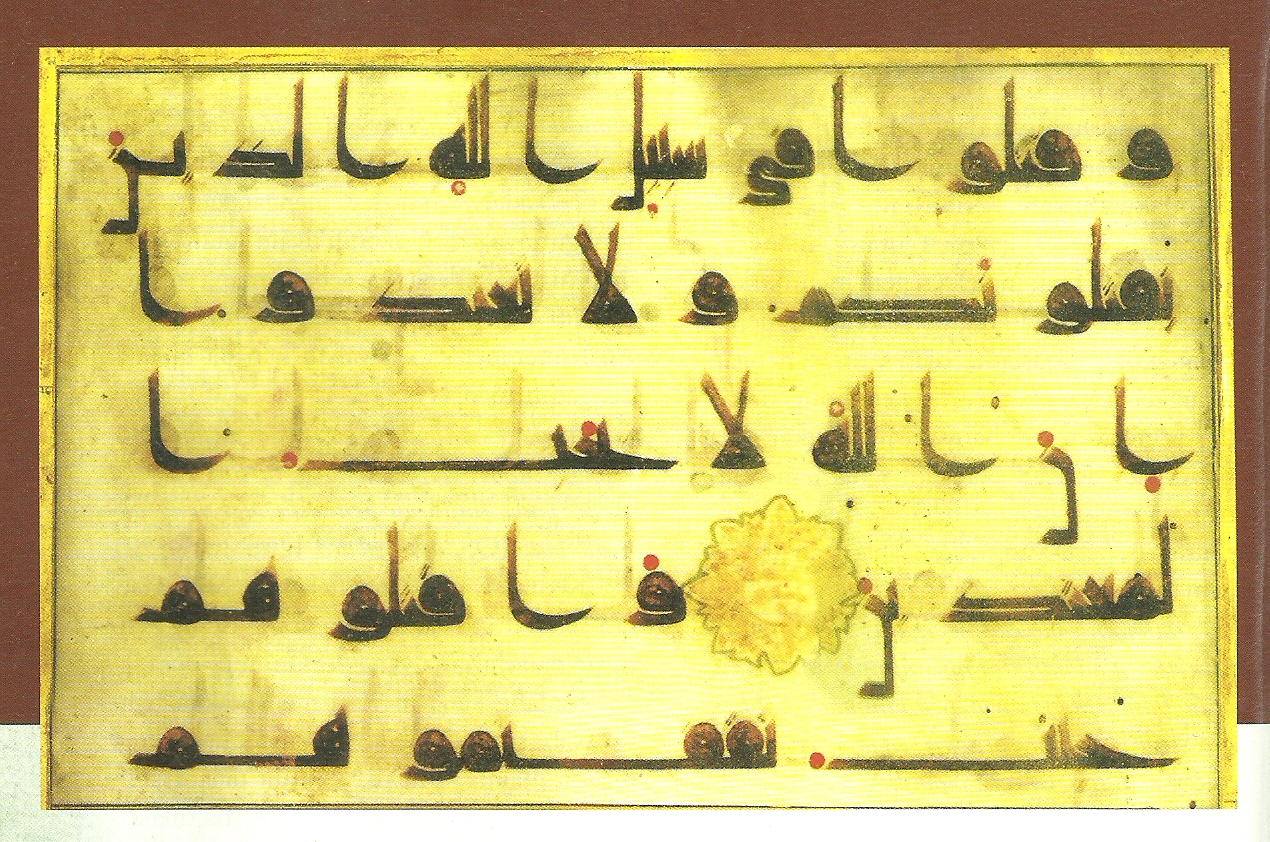 وقتلوا في سبيل الله الذين
يقتلونكم ولا تعتدوا
إن الله لا يحب ا
لمعتدين واقتلوهم
حيث ثقفتموهم